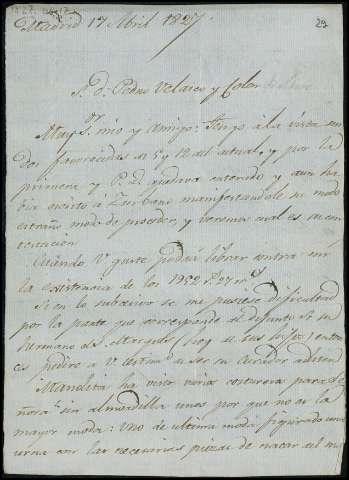 Madrid 17 Abril 1827
29
S. D. Pedro Velasco y
Muy Sr. mio y Amigo: Tengo á la vista sus
dos favorecidas de 5 y 12 del actual, y por la
primera y P. D. quedava enterado y aun ha
bia escrito á Zurbano manifestandole su modo
estraño modo de proceder, y veremos cual es su con
testacion
Cuando V. guste podrá librar contra mi
la existencia de los 1952 rs. 27 ms.
Si en lo subcesivo se me pusiese dificultad
por la parte que corresponde al difunto Sr. su
hermano el Marqués (hoy á sus hijos) entonc
es pediré á V. de ser su Curador
Mandita ha visto varias costureras para Se
ñora: sin almoadilla unas por que no es la
mayor moda: uno de ultima moda figurando una
urna con las necesarias piezas de nacar